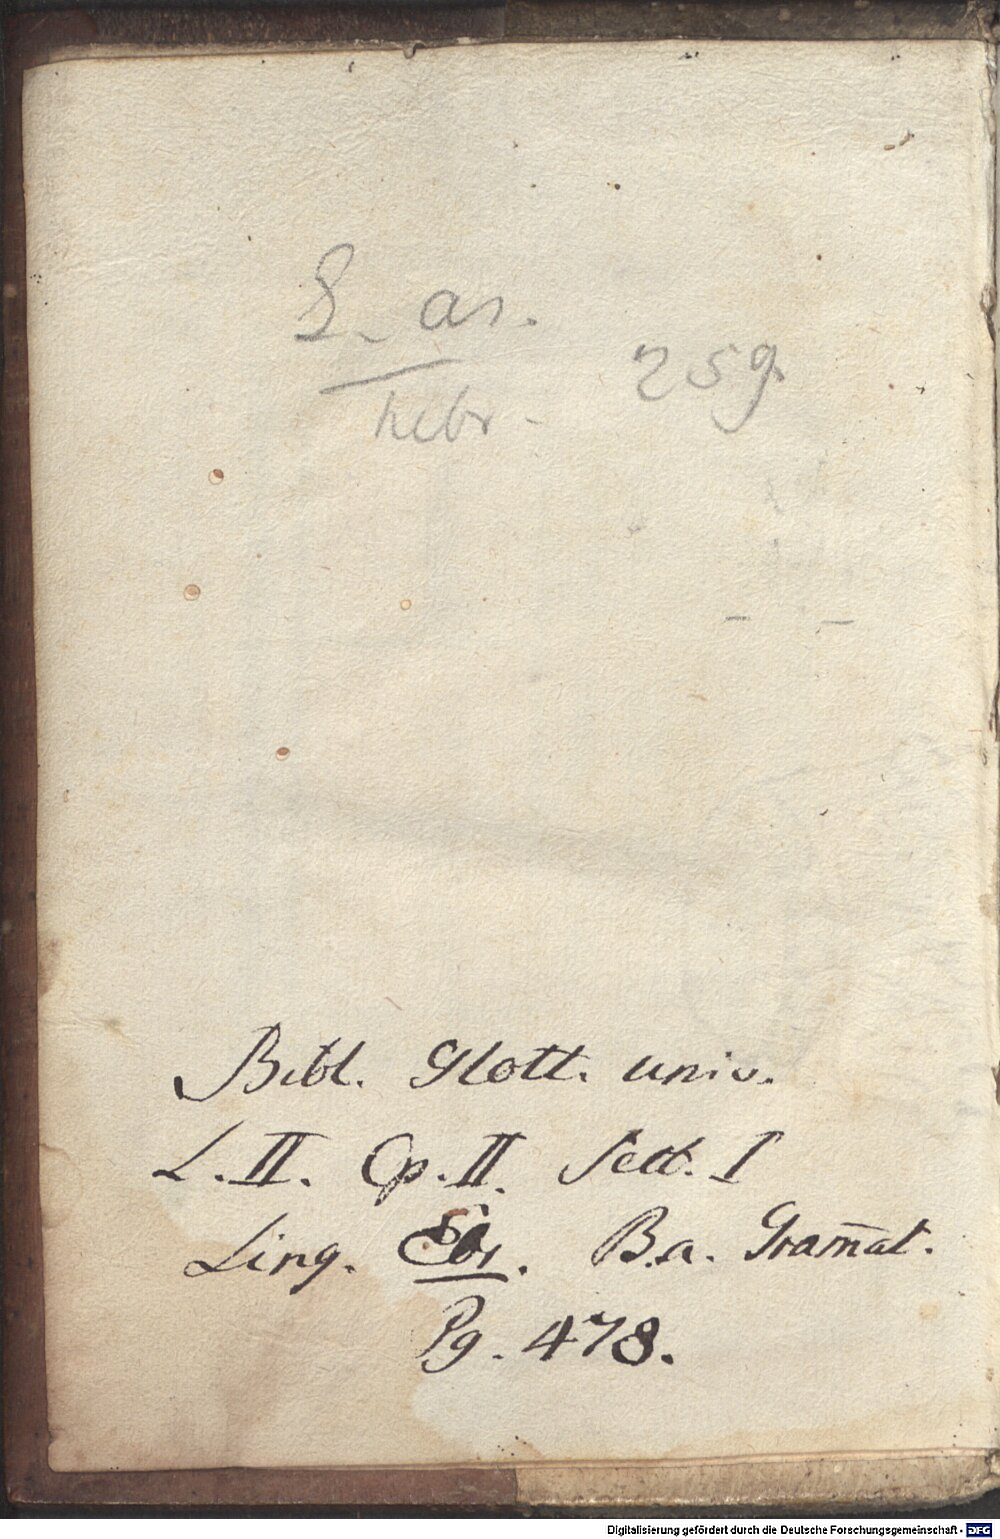 L. as.
hebr.
259
Bibl. Glott. univ.
L. II. Cp. II. Sect. I
Ling. Ebr. B.a. Gram̄at.
Pg. 478.
Digitalisierung gefördert durch die Deutsche Forschungsgemeinschaft - DFG